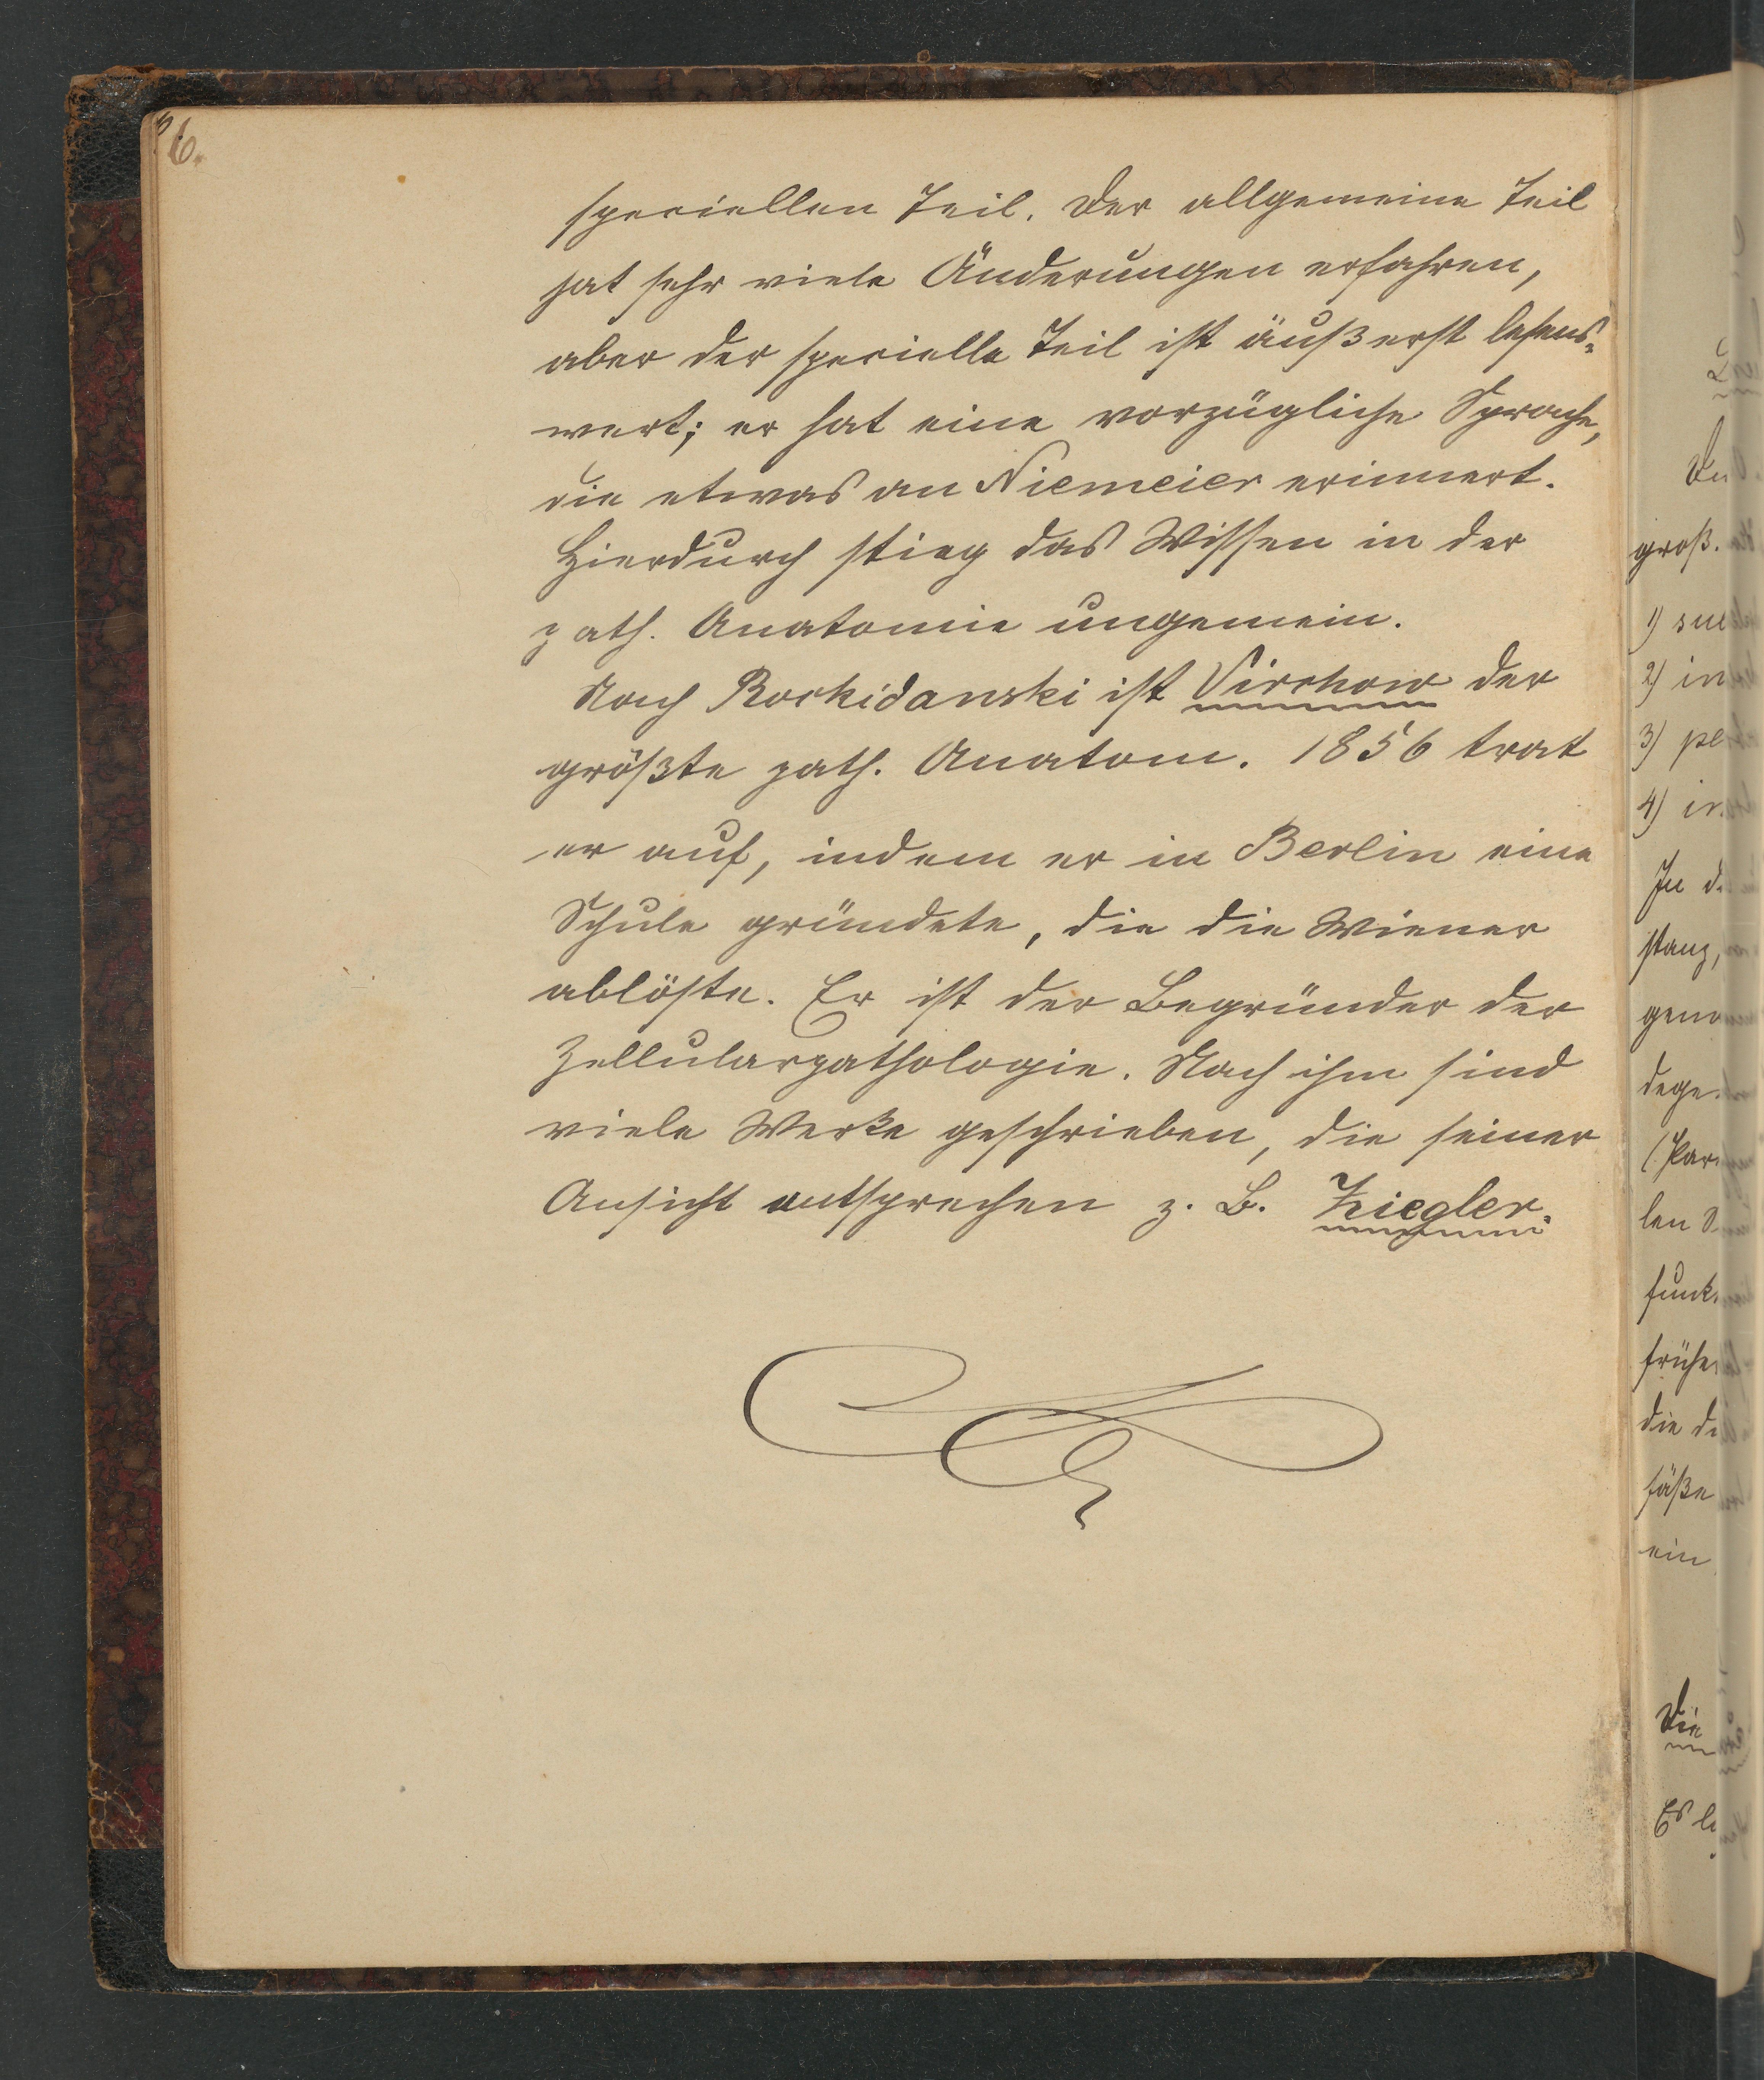 6.
speciellen Teil. Der allgemeine Teil
hat sehr viele Änderungen erfahren,
aber der specielle Teil ist äußerst lesens-
wert; er hat eine vorzügliche Sprache,
die etwas an Niemeier erinnert.
Hierdurch stieg das Wissen in der
path. Anatomie ungemein.
Nach Rockidanski ist Virchow der
größte path. Anatom. 1856 trat
er auf, indem er in Berlin eine
Schule gründete, die die Wiener
ablöste. Er ist der Begründer der
Zellularpathologie. Nach ihm sind
viele Werke geschrieben, die seiner
Ansicht entsprechen z. B. Ziegler.
groß.
1)
2) in
3)
4)
In
stanz,
dege
len
funk
früher
die
ein
Die
Es